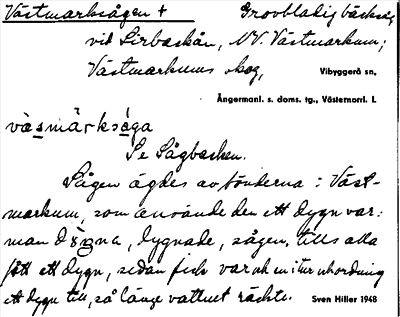 Västmarksågen + Grovbladig bäcksåg
vid Sirbäckån, NV. Västmarkum;
Västmarkums skog, Vibyggerå sn,
Ångermanl. s. doms. tg., Västernorrl. l.
väsmàrksåga
Se Sågbacken.
Sågen ägdes av bönderna i Väst-
markum, som använde den ett dygn var:
man dȳgna, lygnade, sågen, tills alla
fått ett dygn, sedan fick var och en i tur o ordning
ett dygn till, så länge vattnet räckte. Sven Hiller 1948